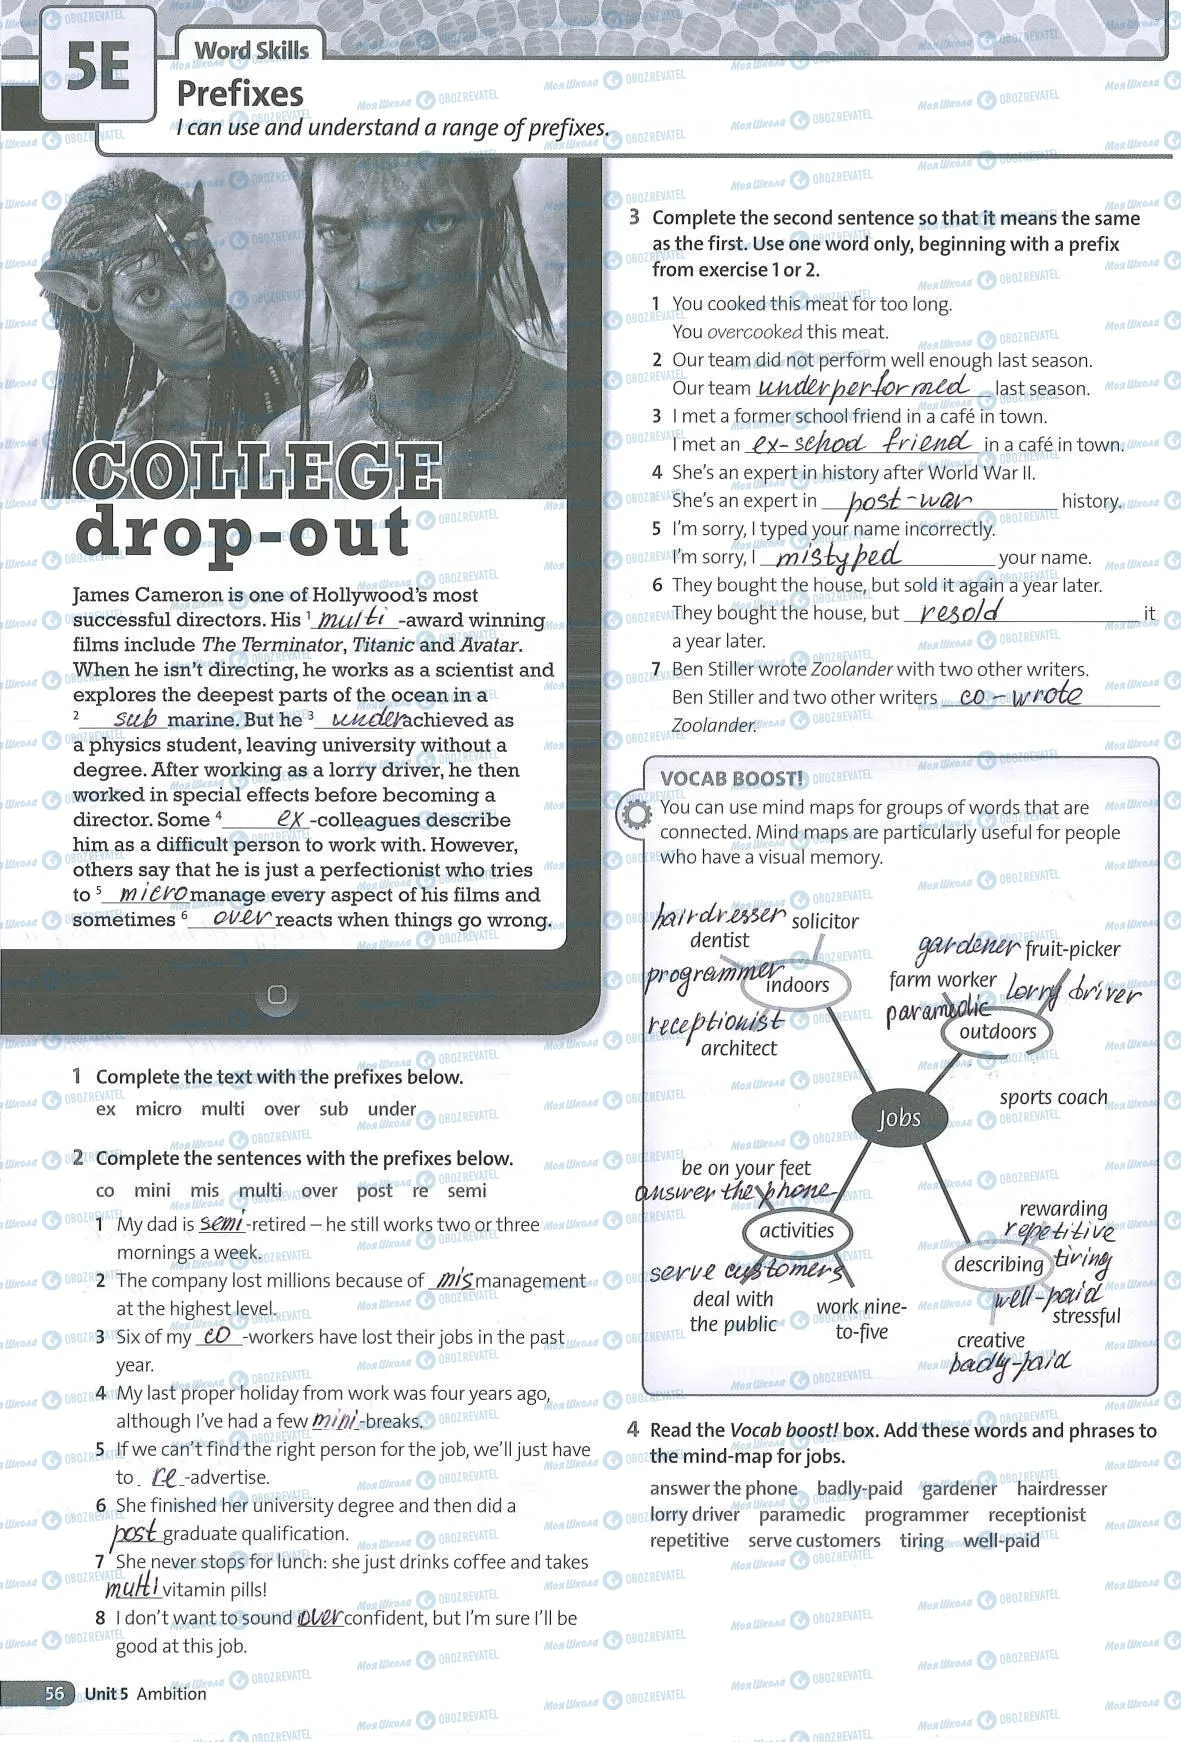 5E
Word Skills
Prefixes
I can use and understand a range of prefixes.
COLLEGE
drop-out
James Cameron is one of Hollywood's most
successful directors. His 1 multi -award winning
films include The Terminator, Titanic and Avatar.
When he isn't directing, he works as a scientist and
explores the deepest parts of the ocean in a
2 sub marine. But he 3 under achieved as
a physics student, leaving university without a
degree. After working as a lorry driver, he then
worked in special effects before becoming a
director. Some 4 ex -colleagues describe
him as a difficult person to work with. However,
others say that he is just a perfectionist who tries
to 5 micro manage every aspect of his films and
sometimes 6 over reacts when things go wrong.
1 Complete the text with the prefixes below.
ex micro multi over sub under
2 Complete the sentences with the prefixes below.
co mini mis multi over post re semi
1 My dad is semi -retired – he still works two or three
mornings a week.
2 The company lost millions because of mis management
at the highest level.
3 Six of my co -workers have lost their jobs in the past
year.
4 My last proper holiday from work was four years ago,
although I've had a few mini -breaks.
5 If we can't find the right person for the job, we'll just have
to re -advertise.
6 She finished her university degree and then did a
post graduate qualification.
7 She never stops for lunch: she just drinks coffee and takes
multi vitamin pills!
8 I don't want to sound over confident, but I'm sure I'll be
good at this job.
3 Complete the second sentence so that it means the same
as the first. Use one word only, beginning with a prefix
from exercise 1 or 2.
1 You cooked this meat for too long.
You overcooked this meat.
2 Our team did not perform well enough last season.
Our team underperformed last season.
3 I met a former school friend in a café in town.
I met an ex-school friend in a café in town.
4 She's an expert in history after World War II.
She's an expert in post-war history.
5 I'm sorry, I typed your name incorrectly.
I'm sorry, I mistyped your name.
6 They bought the house, but sold it again a year later.
They bought the house, but resold it
a year later.
7 Ben Stiller wrote Zoolander with two other writers.
Ben Stiller and two other writers co-wrote
Zoolander.
VOCAB BOOST!
You can use mind maps for groups of words that are
connected. Mind maps are particularly useful for people
who have a visual memory.
hairdresser solicitor
dentist
programmer indoors
receptionist
architect
gardener fruit-picker
farm worker lorry driver
paramedic
outdoors
sports coach
Jobs
be on your feet
answer the phone
activities
serve customers
deal with
the public
work nine-
to-five
rewarding
repetitive
describing tiring
well-paid
stressful
creative
badly-paid
4 Read the Vocab boost! box. Add these words and phrases to
the mind-map for jobs.
answer the phone badly-paid gardener hairdresser
lorry driver paramedic programmer receptionist
repetitive serve customers tiring well-paid
56 Unit 5 Ambition
Моя Школа OBOZREVATEL